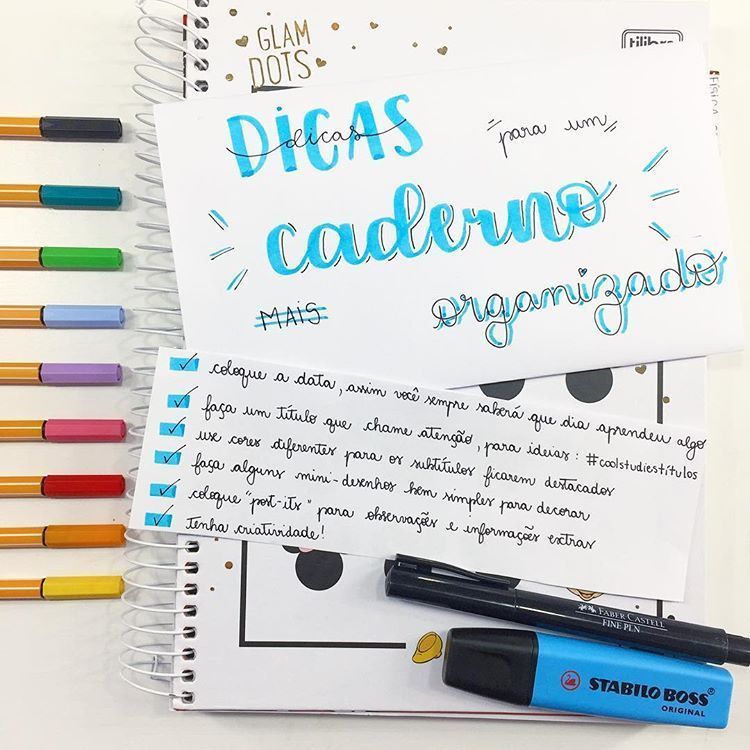 GLAM
DOTS
tilibra
FÍSICA
DICAS
dicas
para um
caderno
MAIS
organizado
coloque a data, assim você sempre saberá que dia aprendeu algo
faça um título que chame atenção, para ideias: #coolstudiestítulos
use cores diferentes para os subtítulos ficarem destacados
faça alguns mini-desenhos bem simples para decorar
coloque "post-its" para observações e informações extras
tenha criatividade!
FABER CASTELL
FINE PEN
STABILO BOSS
ORIGINAL